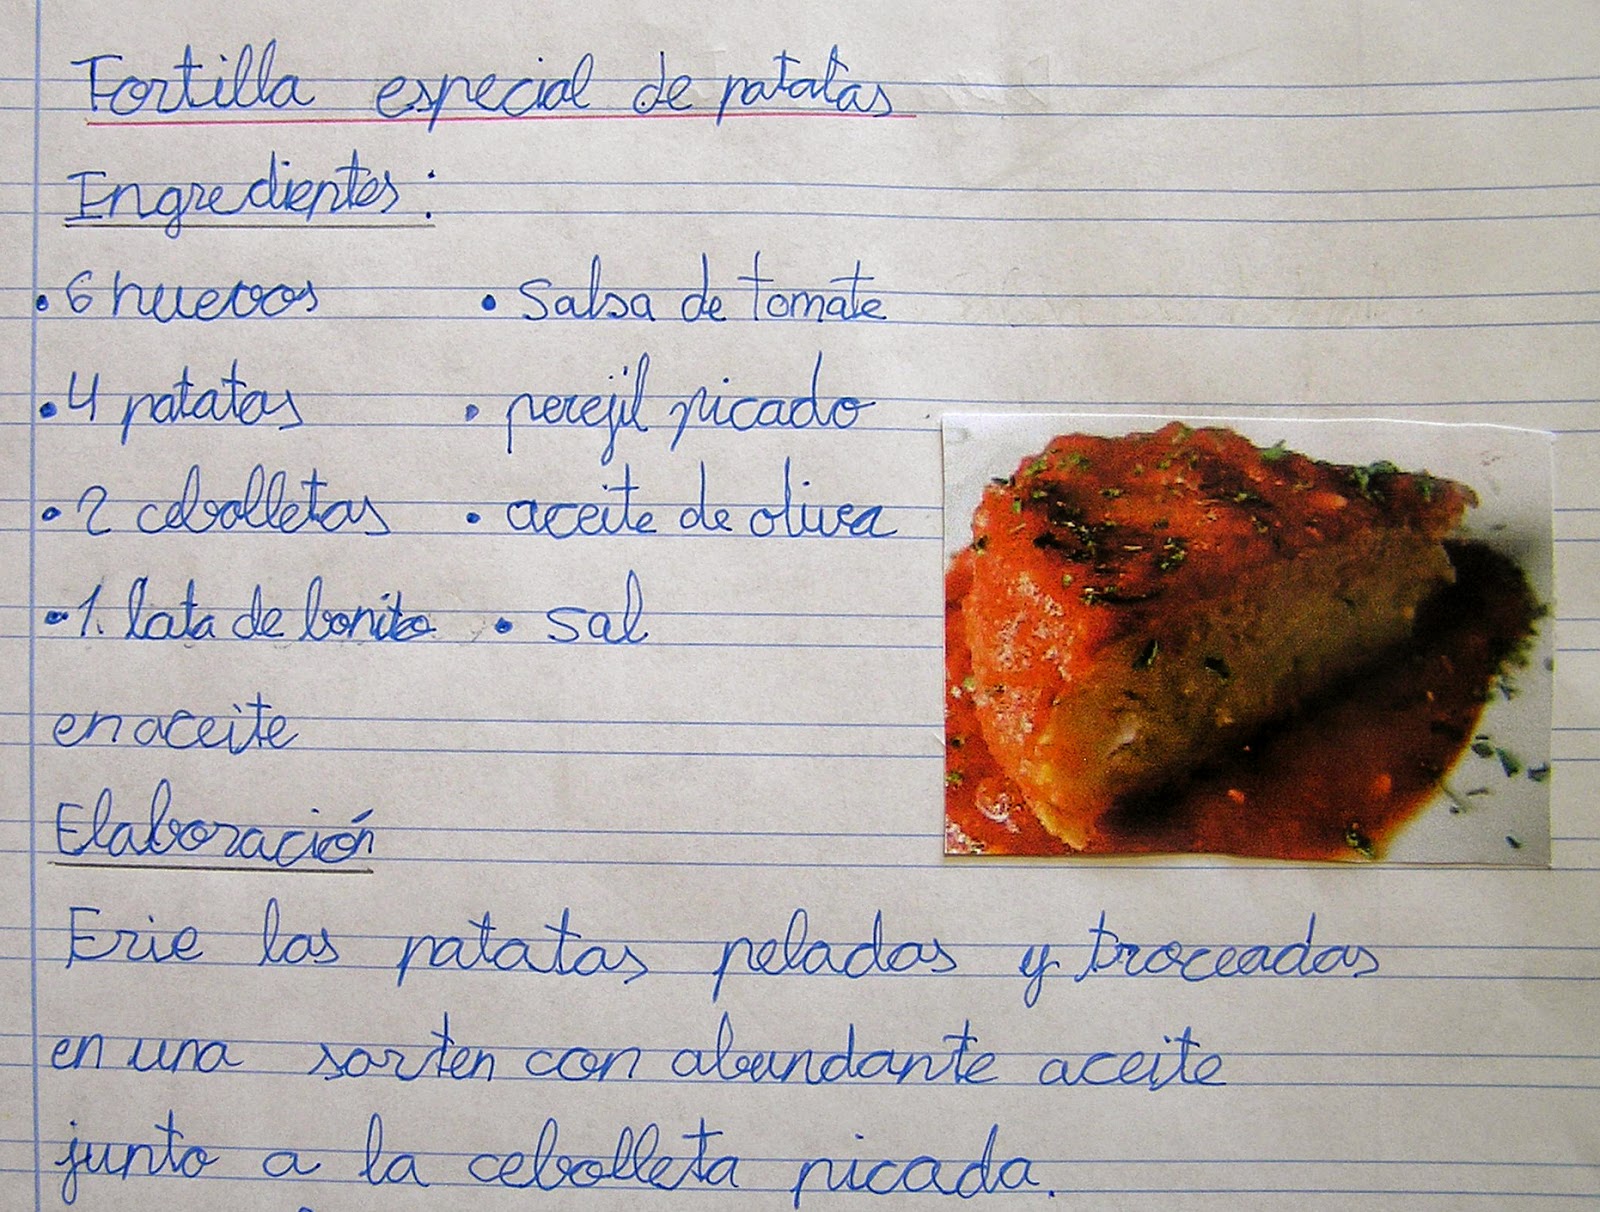 Tortilla especial de patatas
Ingredientes:
• 6 huevos • salsa de tomate
• 4 patatas • perejil picado
• 2 cebolletas • aceite de oliva
• 1 lata de bonito • sal
en aceite
Elaboración
Frie las patatas peladas y troceadas
en una sarten con abundante aceite
junto a la cebolleta picada.